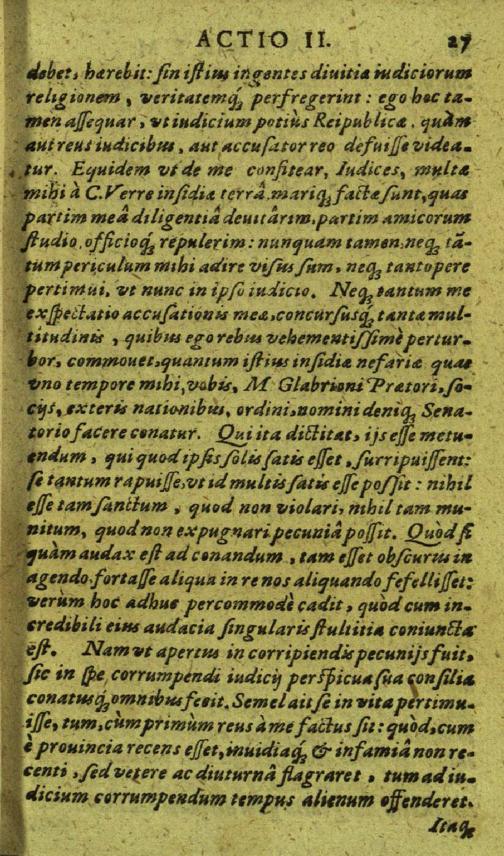 ACTIO II. 27
debet, hærebit: sin istius ingentes diuitiæ iudiciorum
religionem, veritatemq́ꝫ perfregerint: ego hoc ta-
men assequar, vt iudicium potiùs Reipublicæ, quàm
aut reus iudicibus, aut accusator reo defuisse videa-
tur. Equidem vt de me confitear, Iudices, multæ
mihi à C. Verre insidiæ terrâ, mariq́ꝫ factæ sunt, quas
partim meâ diligentiâ deuitârim, partim amicorum
studio, officioq́ꝫ repulerim: nunquam tamen, neq́ꝫ tā-
tum periculum mihi adire visus sum, neq́ꝫ tantopere
pertimui, vt nunc in ipso iudicio. Neq́ꝫ tantum me
exspectatio accusationis meæ, concursusq́ꝫ, tantæ mul-
titudinis, quibus ego rebus vehementissimè pertur-
bor, commouet, quantum istius insidiæ nefariæ quas
vno tempore mihi, vobis, M Glabrioni Prætori, so-
cijs, exteris nationibus, ordini, nomini deniq́ꝫ Sena-
torio facere conatur. Qui ita dictitat, ijs esse metu-
endum, qui quod ipsis solis satis esset, surripuissent:
se tantum rapuisse, vt id multis satis esse possit: nihil
esse tam sanctum, quod non violari, nihil tam mu-
nitum, quod non expugnari pecuniâ possit. Quòd si
quàm audax est ad conandum, tam esset obscurus in
agendo, fortasse aliqua in re nos aliquando fefellisset:
verùm hoc adhuc percommodè cadit, quòd cum in-
credibili eius audacia singularis stultitia coniuncta
est. Nam vt apertus in corripiendis pecunijs fuit,
sic in spe, corrumpendi iudicij perspicua sua consilia
conatusq́ꝫ omnibus fecit. Semel ait se in vita pertimu-
isse, tum, cùm primùm reus à me factus sit: quòd, cum
è prouincia recens esset, inuidiaq́ꝫ & infamiâ non re-
centi, sed vetere ac diuturnâ flagraret, tum ad iu-
dicium corrumpendum tempus alienum offenderet.
Itaqꝫ